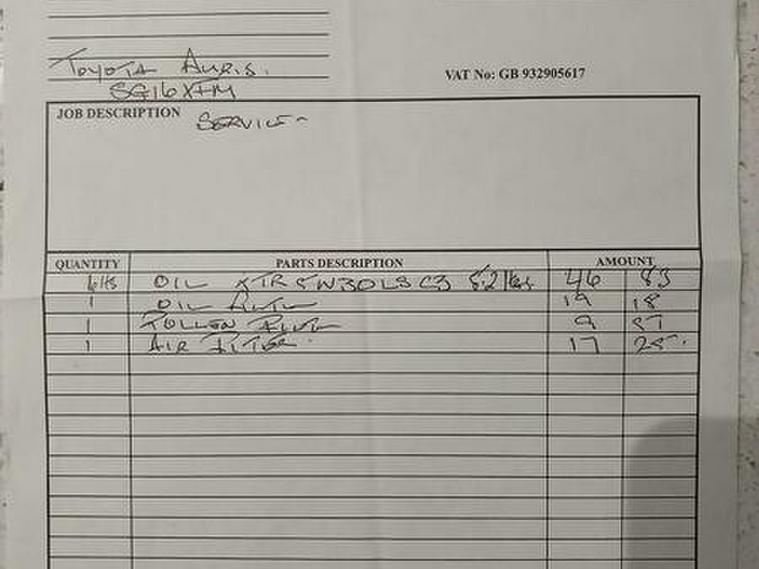 TOYOTA AURIS.
SG16 XFM
VAT No: GB 932905617
JOB DESCRIPTION SERVICE
QUANTITY PARTS DESCRIPTION AMOUNT
OIL 5W30 C3 46 83
1 OIL FILTER 19 18
1 POLLEN FILTER 9 57
1 AIR FILTER. 17 25.